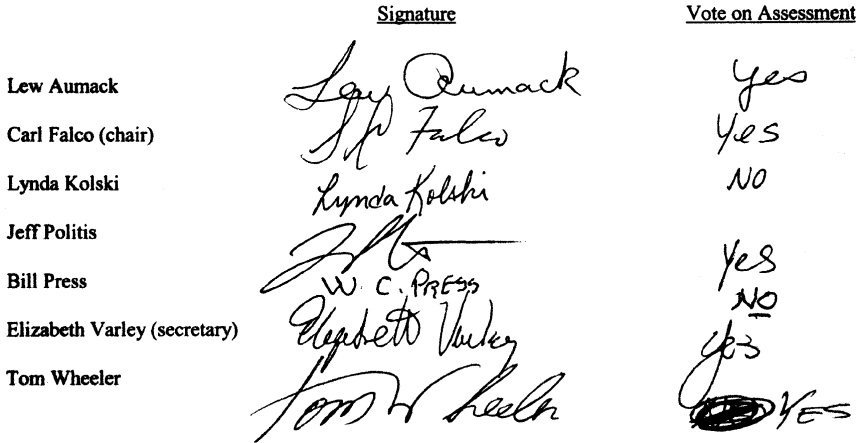 Signature Vote on Assessment
Lew Aumack Lew Aumack Yes
Carl Falco (chair) Falco Yes
Lynda Kolski Lynda Kolski NO
Jeff Politis Yes
Bill Press W. C. PRESS NO
Elizabeth Varley (secretary) Elizabeth Varley Yes
Tom Wheeler Tom Wheeler YES